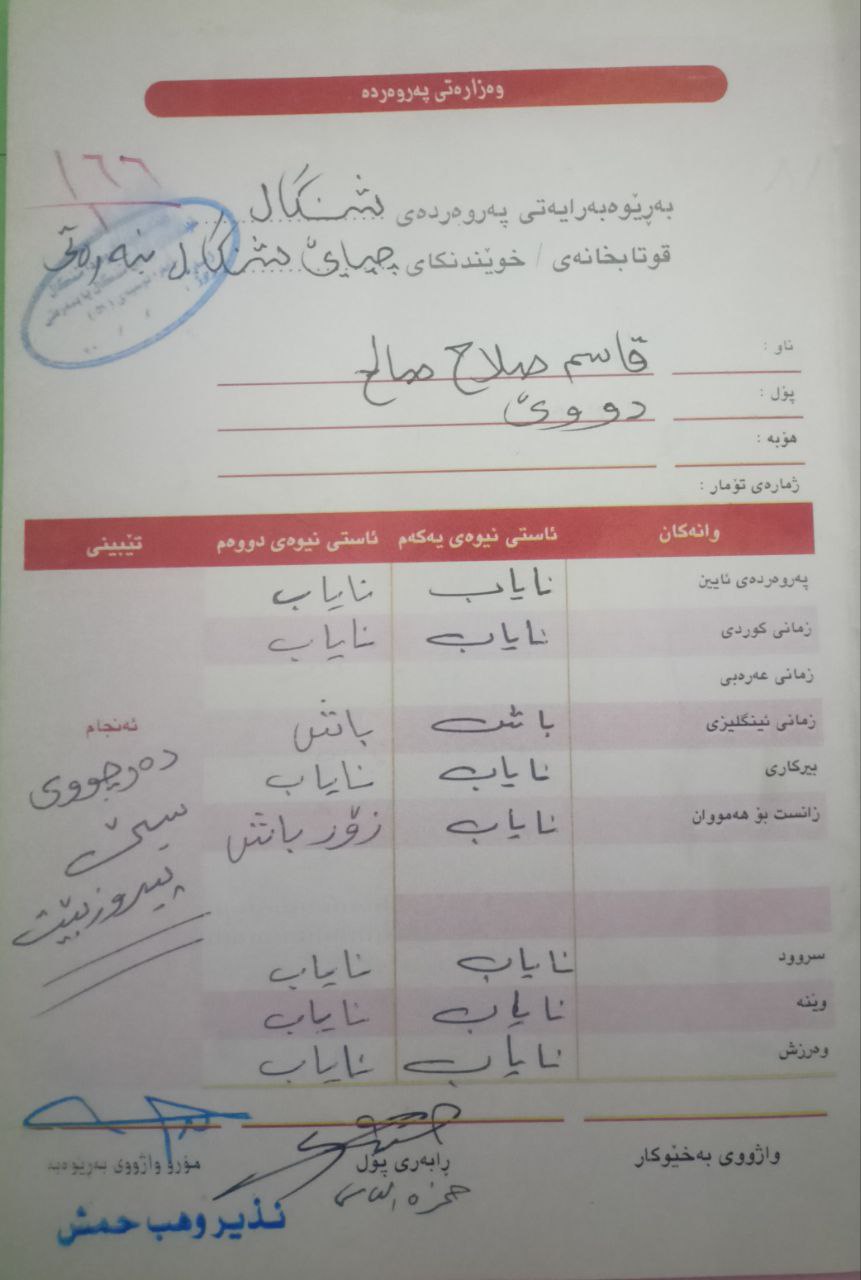 وەزارەتی پەروەردە
١٦٦
١
بەڕێوەبەرایەتی پەروەردەی شنگال
قوتابخانەی / خوێندنگای چیایێ شنگال بنەرەتی
ناو : قاسم صلاح صالح
پۆل : دووێ
هۆبە :
ژمارەی تۆمار :
وانەکان ئاستی نیوەی یەکەم ئاستی نیوەی دووەم تێبینی
پەروەردەی ئایین نایاب نایاب
زمانی کوردی نایاب نایاب
زمانی عەرەبی
زمانی ئینگلیزی باش باش
بیرکاری نایاب نایاب
زانست بۆ هەمووان نایاب زۆر باش
ئەنجام
دەرچووی
سیێ
پیروزبێت
سروود نایاب نایاب
وێنە نایاب نایاب
وەرزش نایاب نایاب
واژووی بەخێوکار ڕابەری پۆل مۆرو واژووی بەڕێوەبە
حمزە الیاس
نذیر وهب حمش